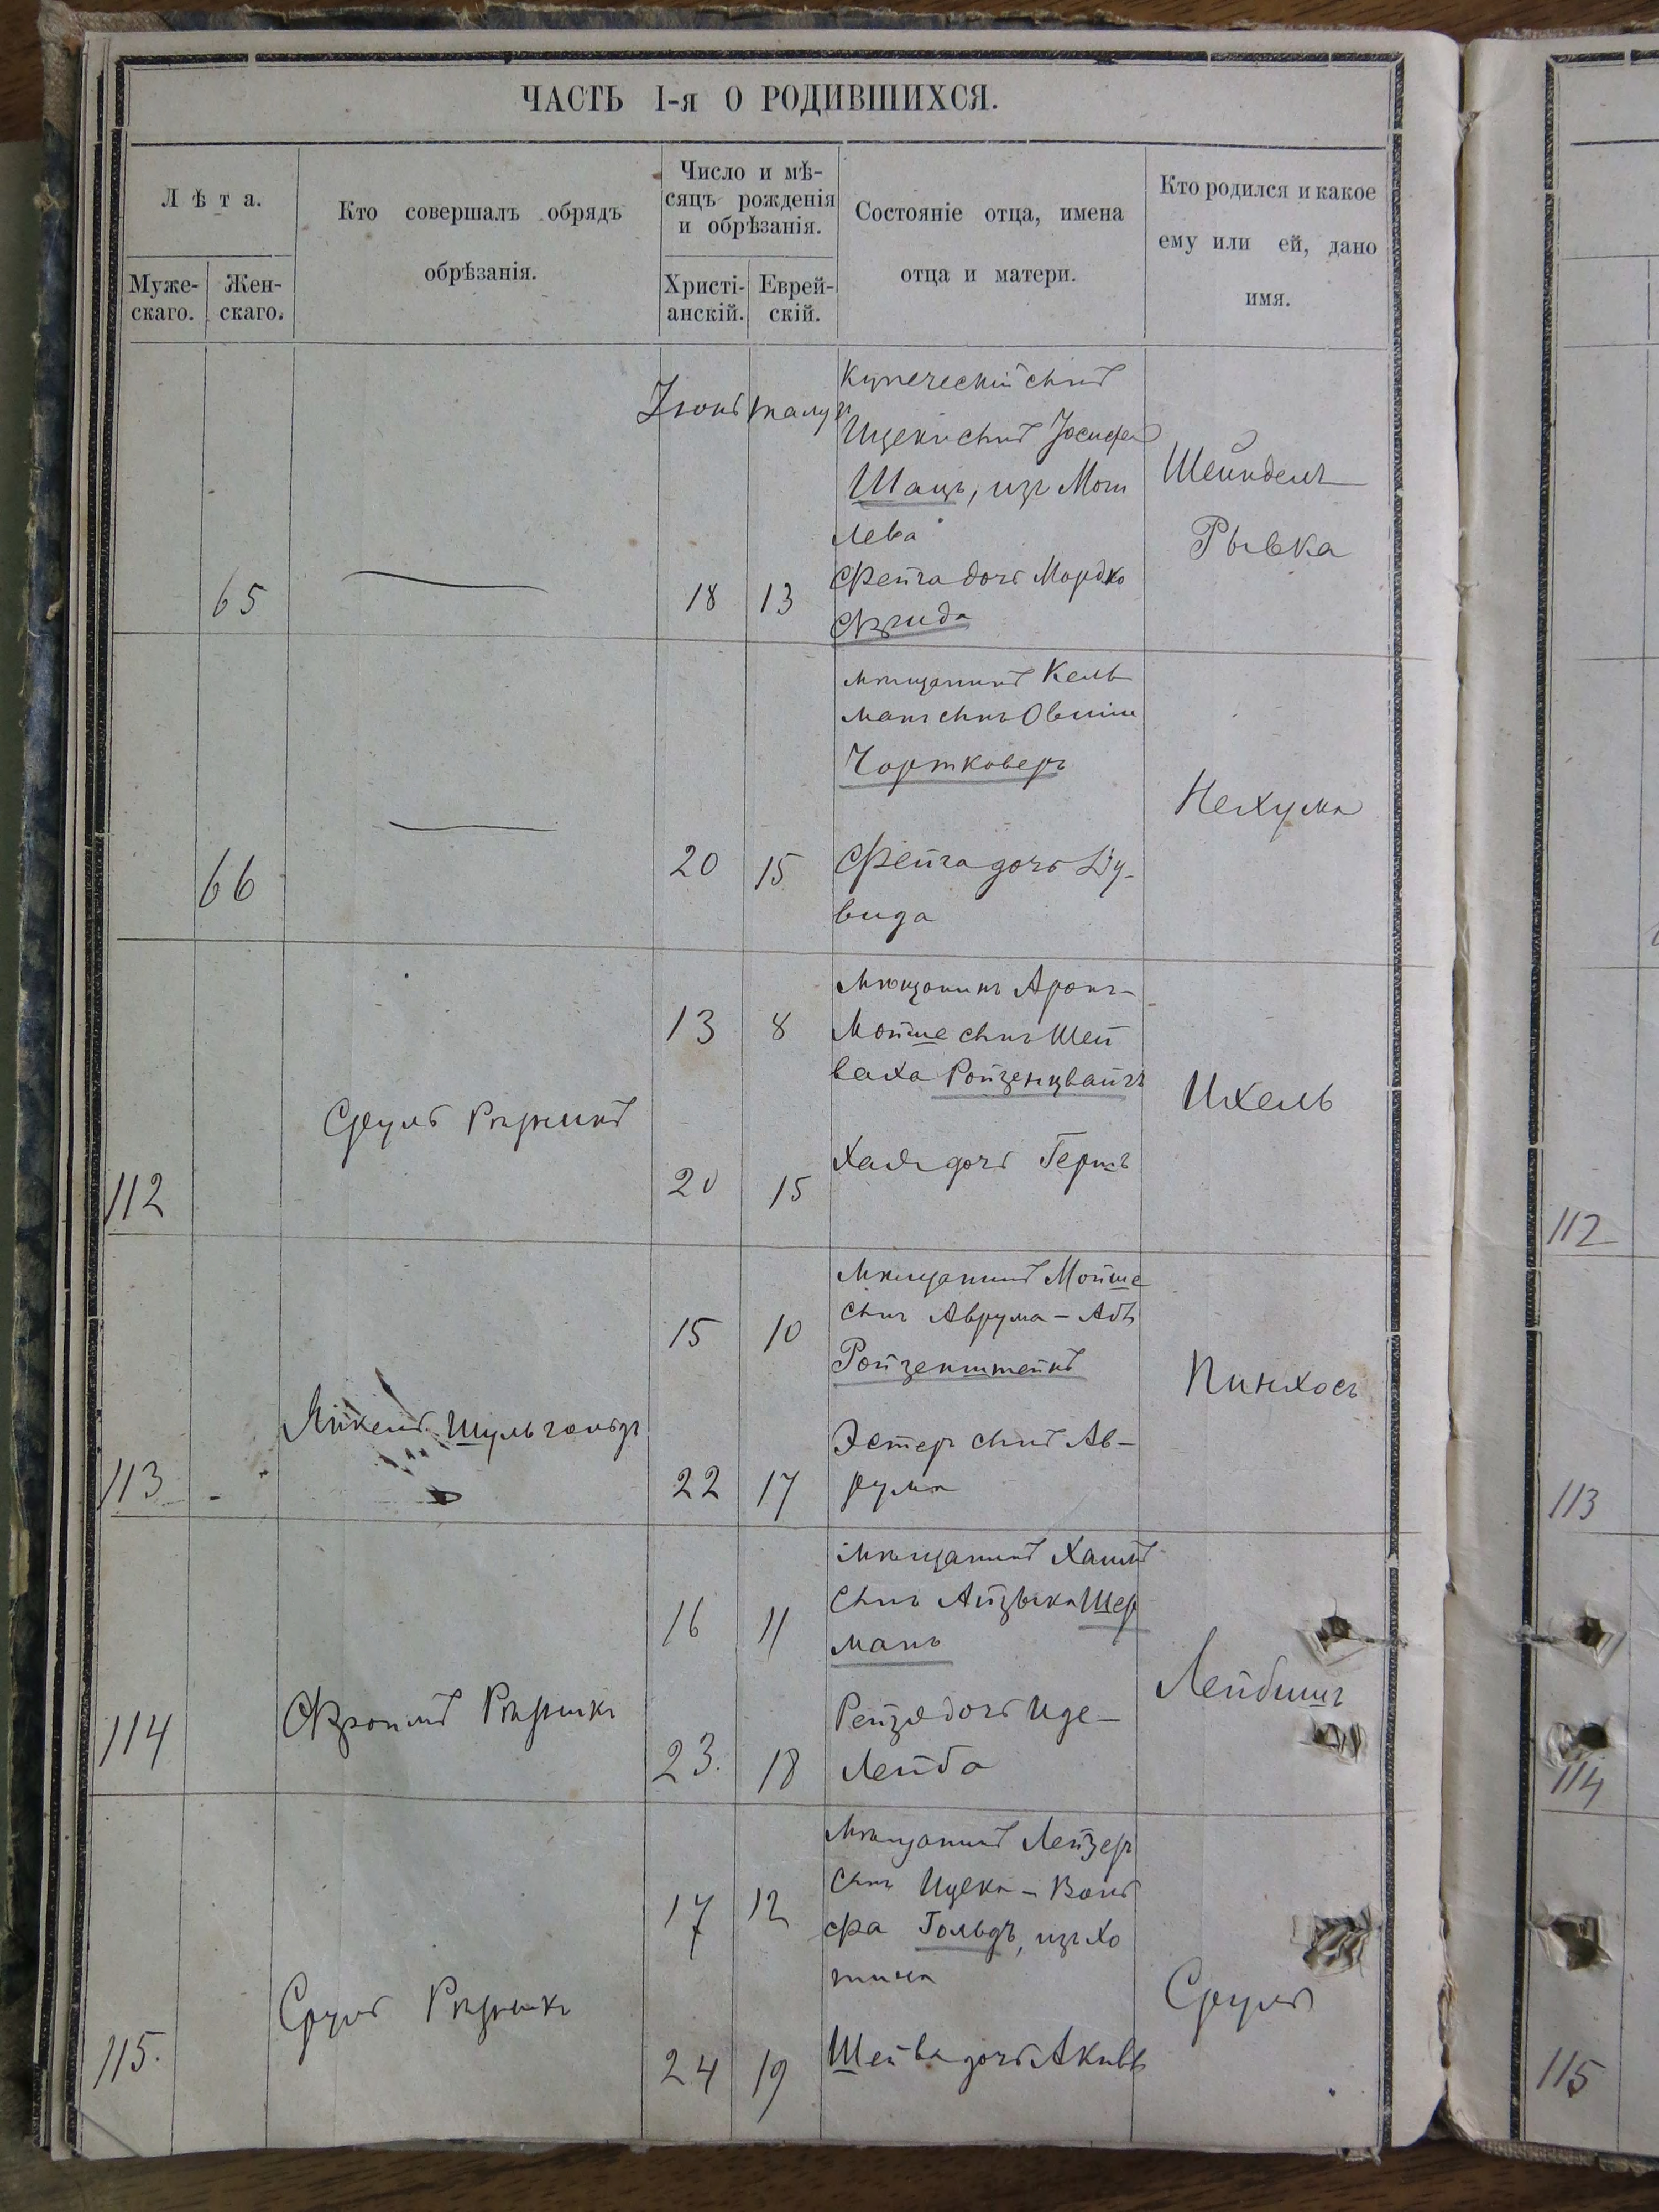 ЧАСТЬ I-я О РОДИВШИХСЯ.
Лѣта.
Муже-
скаго.
Жен-
скаго.
Кто совершалъ обрядъ
обрѣзанія.
Число и мѣ-
сяцъ рожденія
и обрѣзанія.
Христі-
анскій.
Еврей-
скій.
Состояніе отца, имена
отца и матери.
Кто родился и какое
ему или ей, дано
имя.
65
Іюнь
18
13
Купеческій сынъ
Ицекъ сынъ Іосифа
Шацъ, изъ Моги
лева
Фейга дочь Мордко
Шейндель
Рывка
66
20
15
мѣщанинъ Кель
манъ сынъ Овшіи
Чортковеръ
Фейга дочь Ду-
вида
Нехума
112
Сруль
13
8
20
15
Мѣщанинъ Аронъ-
Мойше сынъ Шей
ваха Ройзенцвайгъ
Хая дочь Гершъ
Ихель
112
113
Янкель Шульгольдъ
15
10
22
17
Мѣщанинъ Мойше
сынъ Аврума - Абъ
Ройзенштейнъ
Эстеръ сынъ Ав-
рума
Пинхосъ
113
114
Фроимъ
16
11
23.
18
мѣщанинъ Хаимъ
сынъ Айзыка Шер
манъ
Рейзя дочь Иде-
Лейба
Лейбишъ
114
115.
Сруль
17
12
24
19
Мѣщанинъ Лейзеръ
сынъ Ицека - Воль
фа Гольдъ, изъ Хо
тина
Шейва дочь Акивы
Сруль
115